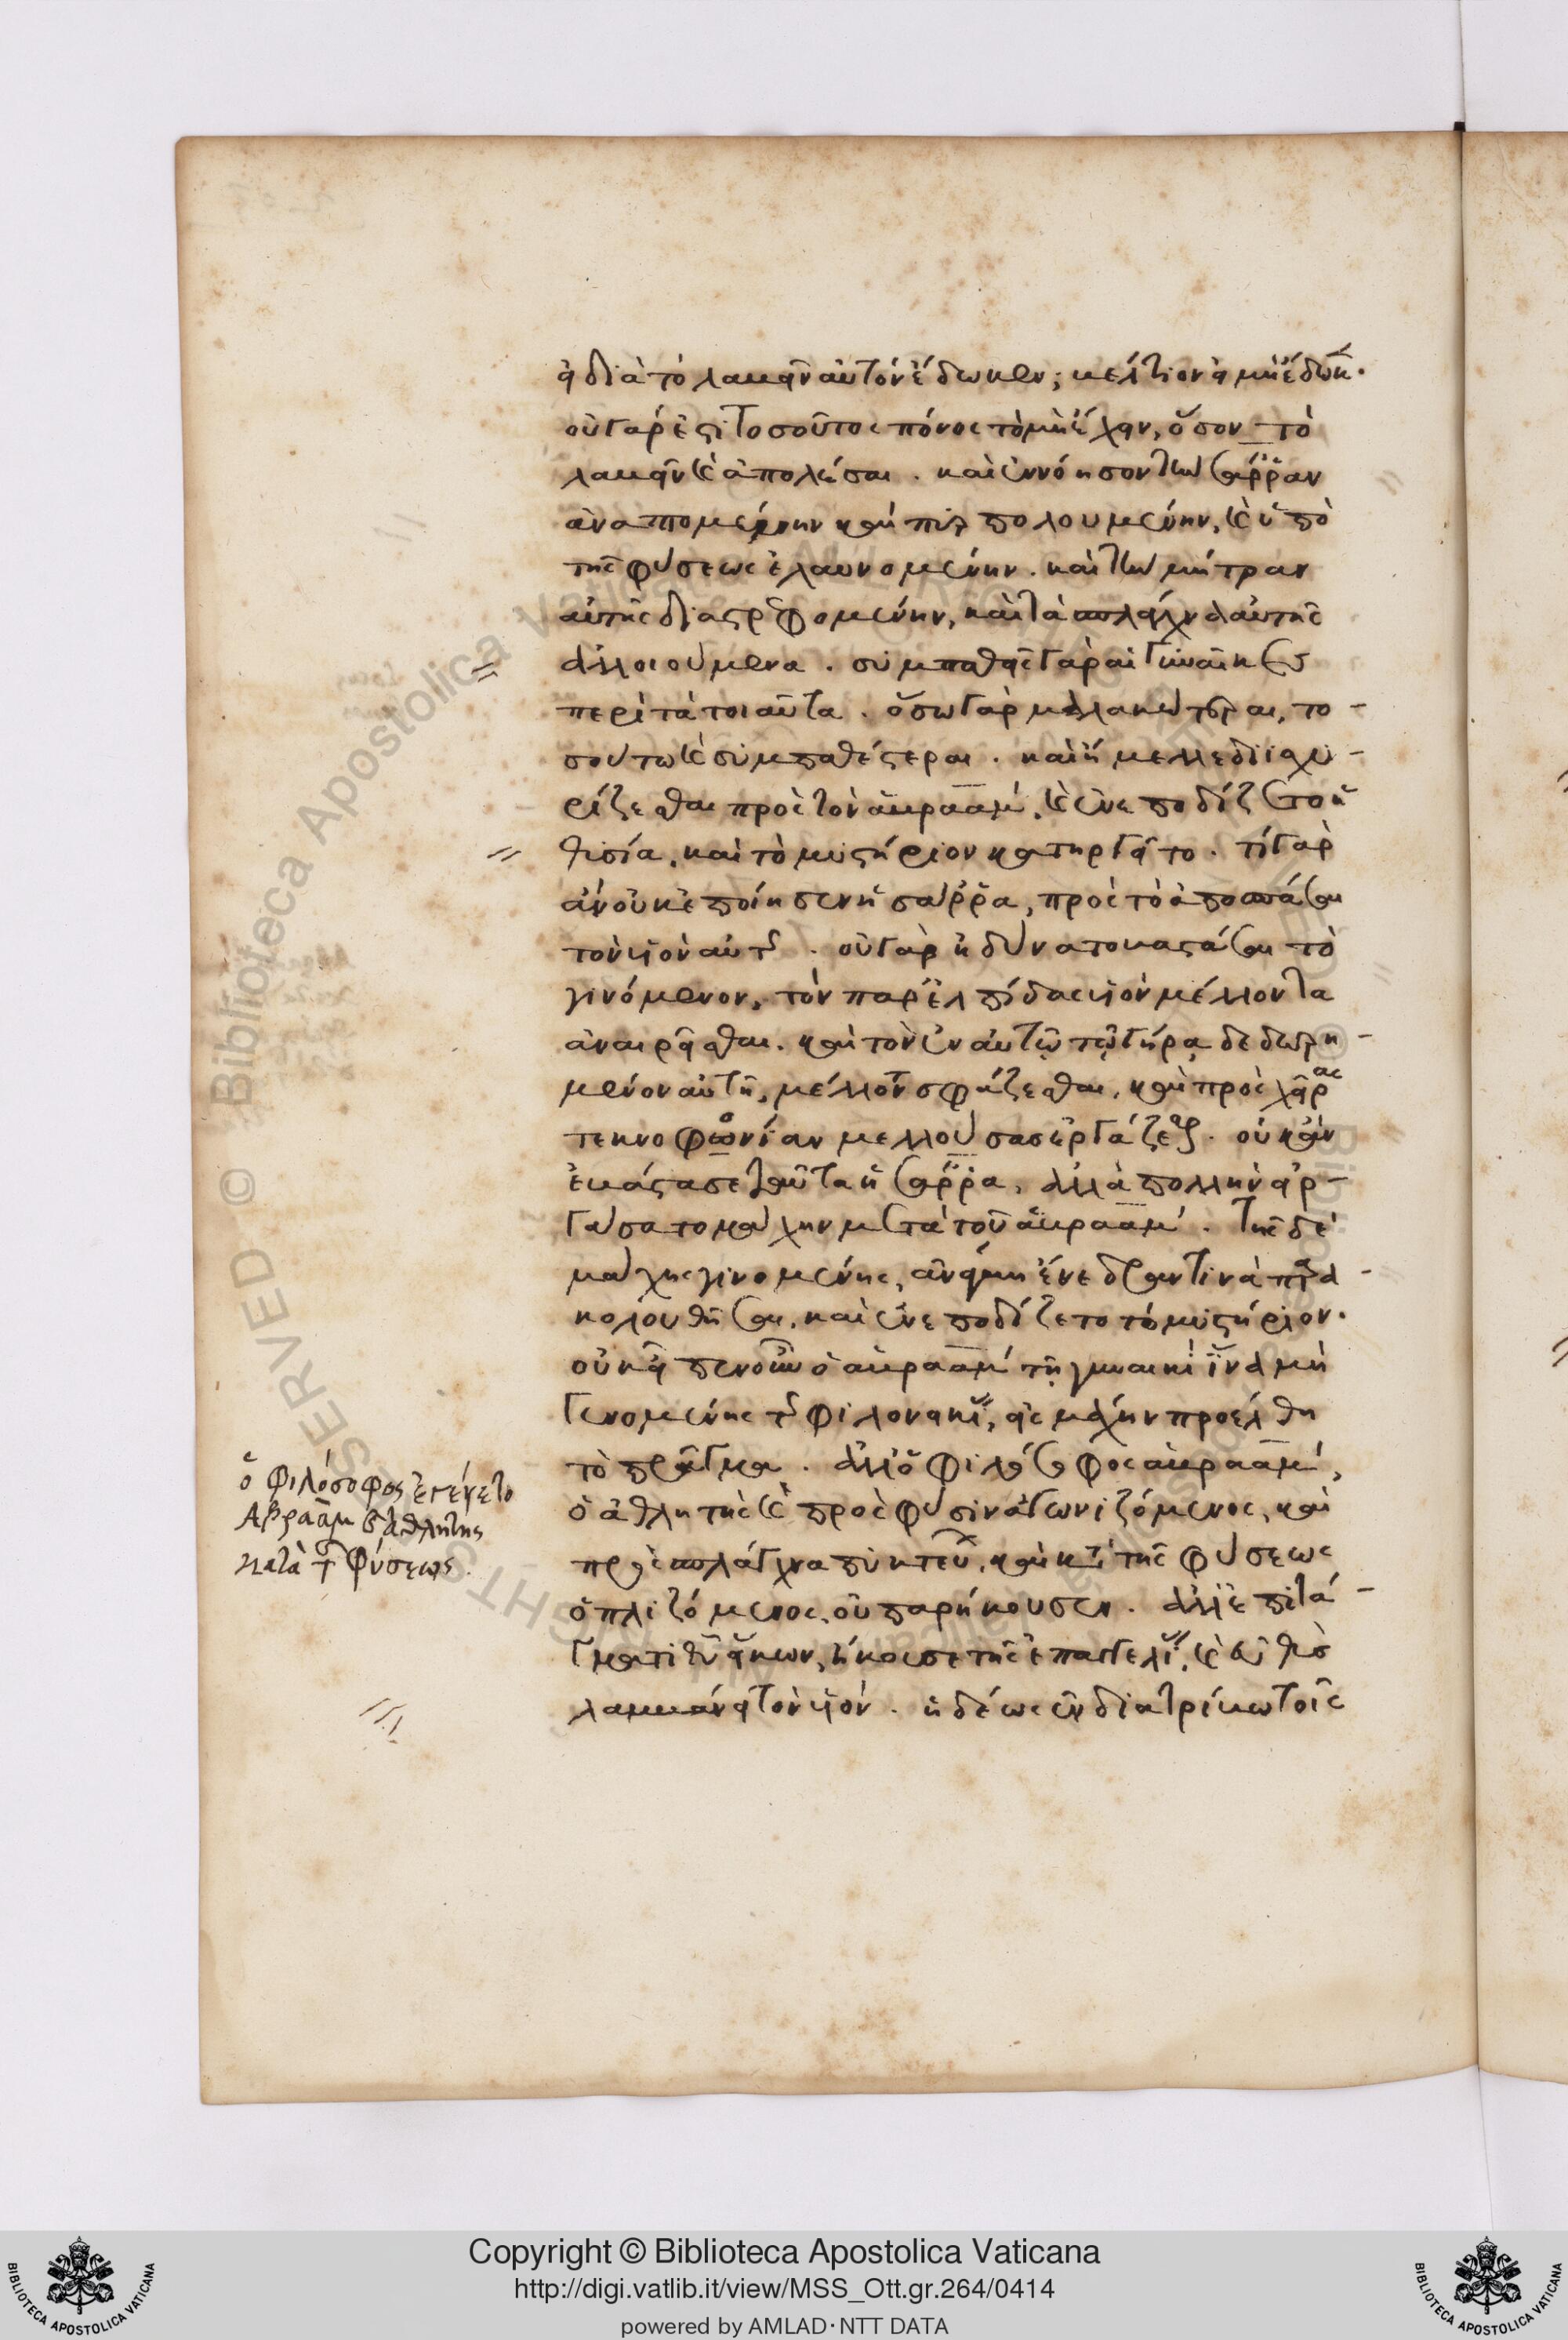 εἰ διὰ τὸ λαβεῖν αὐτὸν ἔδωκεν; βέλτιον εἰ μὴ ἔδωκ.
οὐ γάρ ἐστι τοσοῦτος πόνος τὸ μὴ ἔχειν, ὅσον τὸ
λαβεῖν καὶ ἀπολέσαι. καὶ ἐννόησον τὴν σάρραν
καὶ πυρπολουμένην, καὶ ὑπὸ
τῆς φύσεως ἐλαυνομένην. καὶ τὴν μήτραν
αὐτῆς διαστρεφομένην, καὶ τὰ σπλάγχνα αὐτῆς
ἀλλοιούμενα. συμπαθεῖς γὰρ αἱ γυναῖκες
περὶ τὰ τοιαῦτα. ὅσω γὰρ μαλακώτεραι, το-
σούτω καὶ συμπαθέστεραι. καὶ ἤμελλε διϊσχυ-
ρίζεσθαι πρὸς τὸν ἀβραάμ. καὶ ἐνεποδίζετο ἡ
θυσία, καὶ τὸ μυστήριον κατηργεῖτο. τί γὰρ
ἂν οὐκ ἐποίησεν ἡ σάρρα, πρὸς τὸ ἀποσπάσαι
τὸν υἱὸν αὐτῆς. οὐ γὰρ ἠδύνατο βαστάσαι τὸ
γινόμενον, τὸν παρ' ἐλπίδας υἱὸν μέλλοντα
ἀναιρεῖσθαι. καὶ τὸν ἐν αὐτῷ τῷ γήρᾳ δεδωρη-
μένον αὐτῆ, μέλλοντα σφάζεσθαι, καὶ πρὸς χεῖρας
τεκνοφονίαν μελλούσας ἐργάζεσθαι. οὐκ ἂν
ἐβάστασε ταῦτα ἡ σάρρα, ἀλλὰ πολλὴν εἰρ-
γάσατο μάχην μετὰ τοῦ ἀβραάμ. τῆς δὲ
μάχης γινομένης, ἂν
κολουθῆσαι, καὶ ἐνεποδίζετο τὸ μυστήριον.
οὐκ εἶπεν οὖν ὁ ἀβραὰμ τῇ γυναικὶ ἵνα μὴ
γενομένης τῆς φιλονεικίας, εἰς μάχην προέλθη
τὸ πρᾶγμα. ἀλλ' ὁ φιλόσοφος ἀβραάμ,
ὁ ἀθλητὴς καὶ πρὸς φύσιν ἀγωνιζόμενος, καὶ
πρὸς σπλάγχνα πυκτεύων, καὶ κατὰ τῆς φύσεως
ὁπλιζόμενος, οὐ παρήκουσεν. ἀλλ' ἐπιτά-
γματι θεοῦ εἴκων, ἤκουσε τῆς ἐπαγγελίας, καὶ εὐθὺς
λαμβάνει τὸν υἱόν. ἡδέως ἐνδιατρίβω τοῖς
ὁ φιλόσοφος ἐγένετο
Ἀβραὰμ καὶ ἀθλητὴς
κατὰ τῆς φύσεως.
Copyright © Biblioteca Apostolica Vaticana
http://digi.vatlib.it/view/MSS_Ott.gr.264/0414
powered by AMLAD·NTT DATA